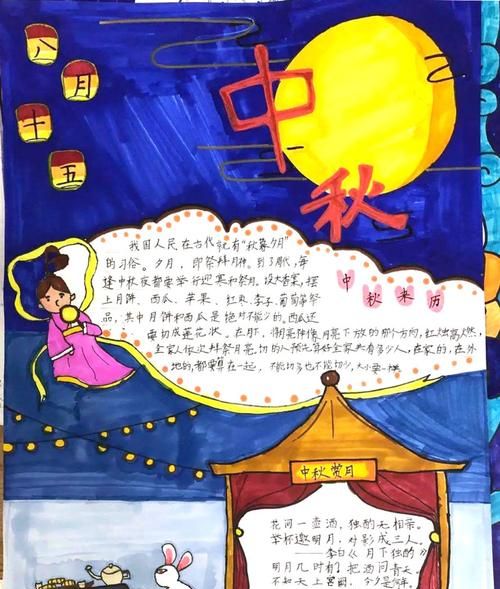 八月
十五
中秋
中秋来历
我国人民在古代就有"秋暮夕月"
的习俗。夕月，即祭拜月神。到了周代，每
逢中秋夜都要举行迎寒和祭月。设大香案，摆
上月饼、西瓜、苹果、红枣、李子、葡萄等祭
品，其中月饼和西瓜是绝对不能少的，西瓜还
要切成莲花状。在月下，将月亮神像月亮下放的那个方向，红烛高燃，
全家人依次拜祭月亮，切的人预先算好全家共有多少人，在家的，在外
地的，都要算在一起，不能切多也不能切少，大小要一样
中秋赏月
花间一壶酒，独酌无相亲。
举杯邀明月，对影成三人。
——李白《月下独酌》
明月几时有，把酒问青天。
不知天上宫阙，今夕是何年。